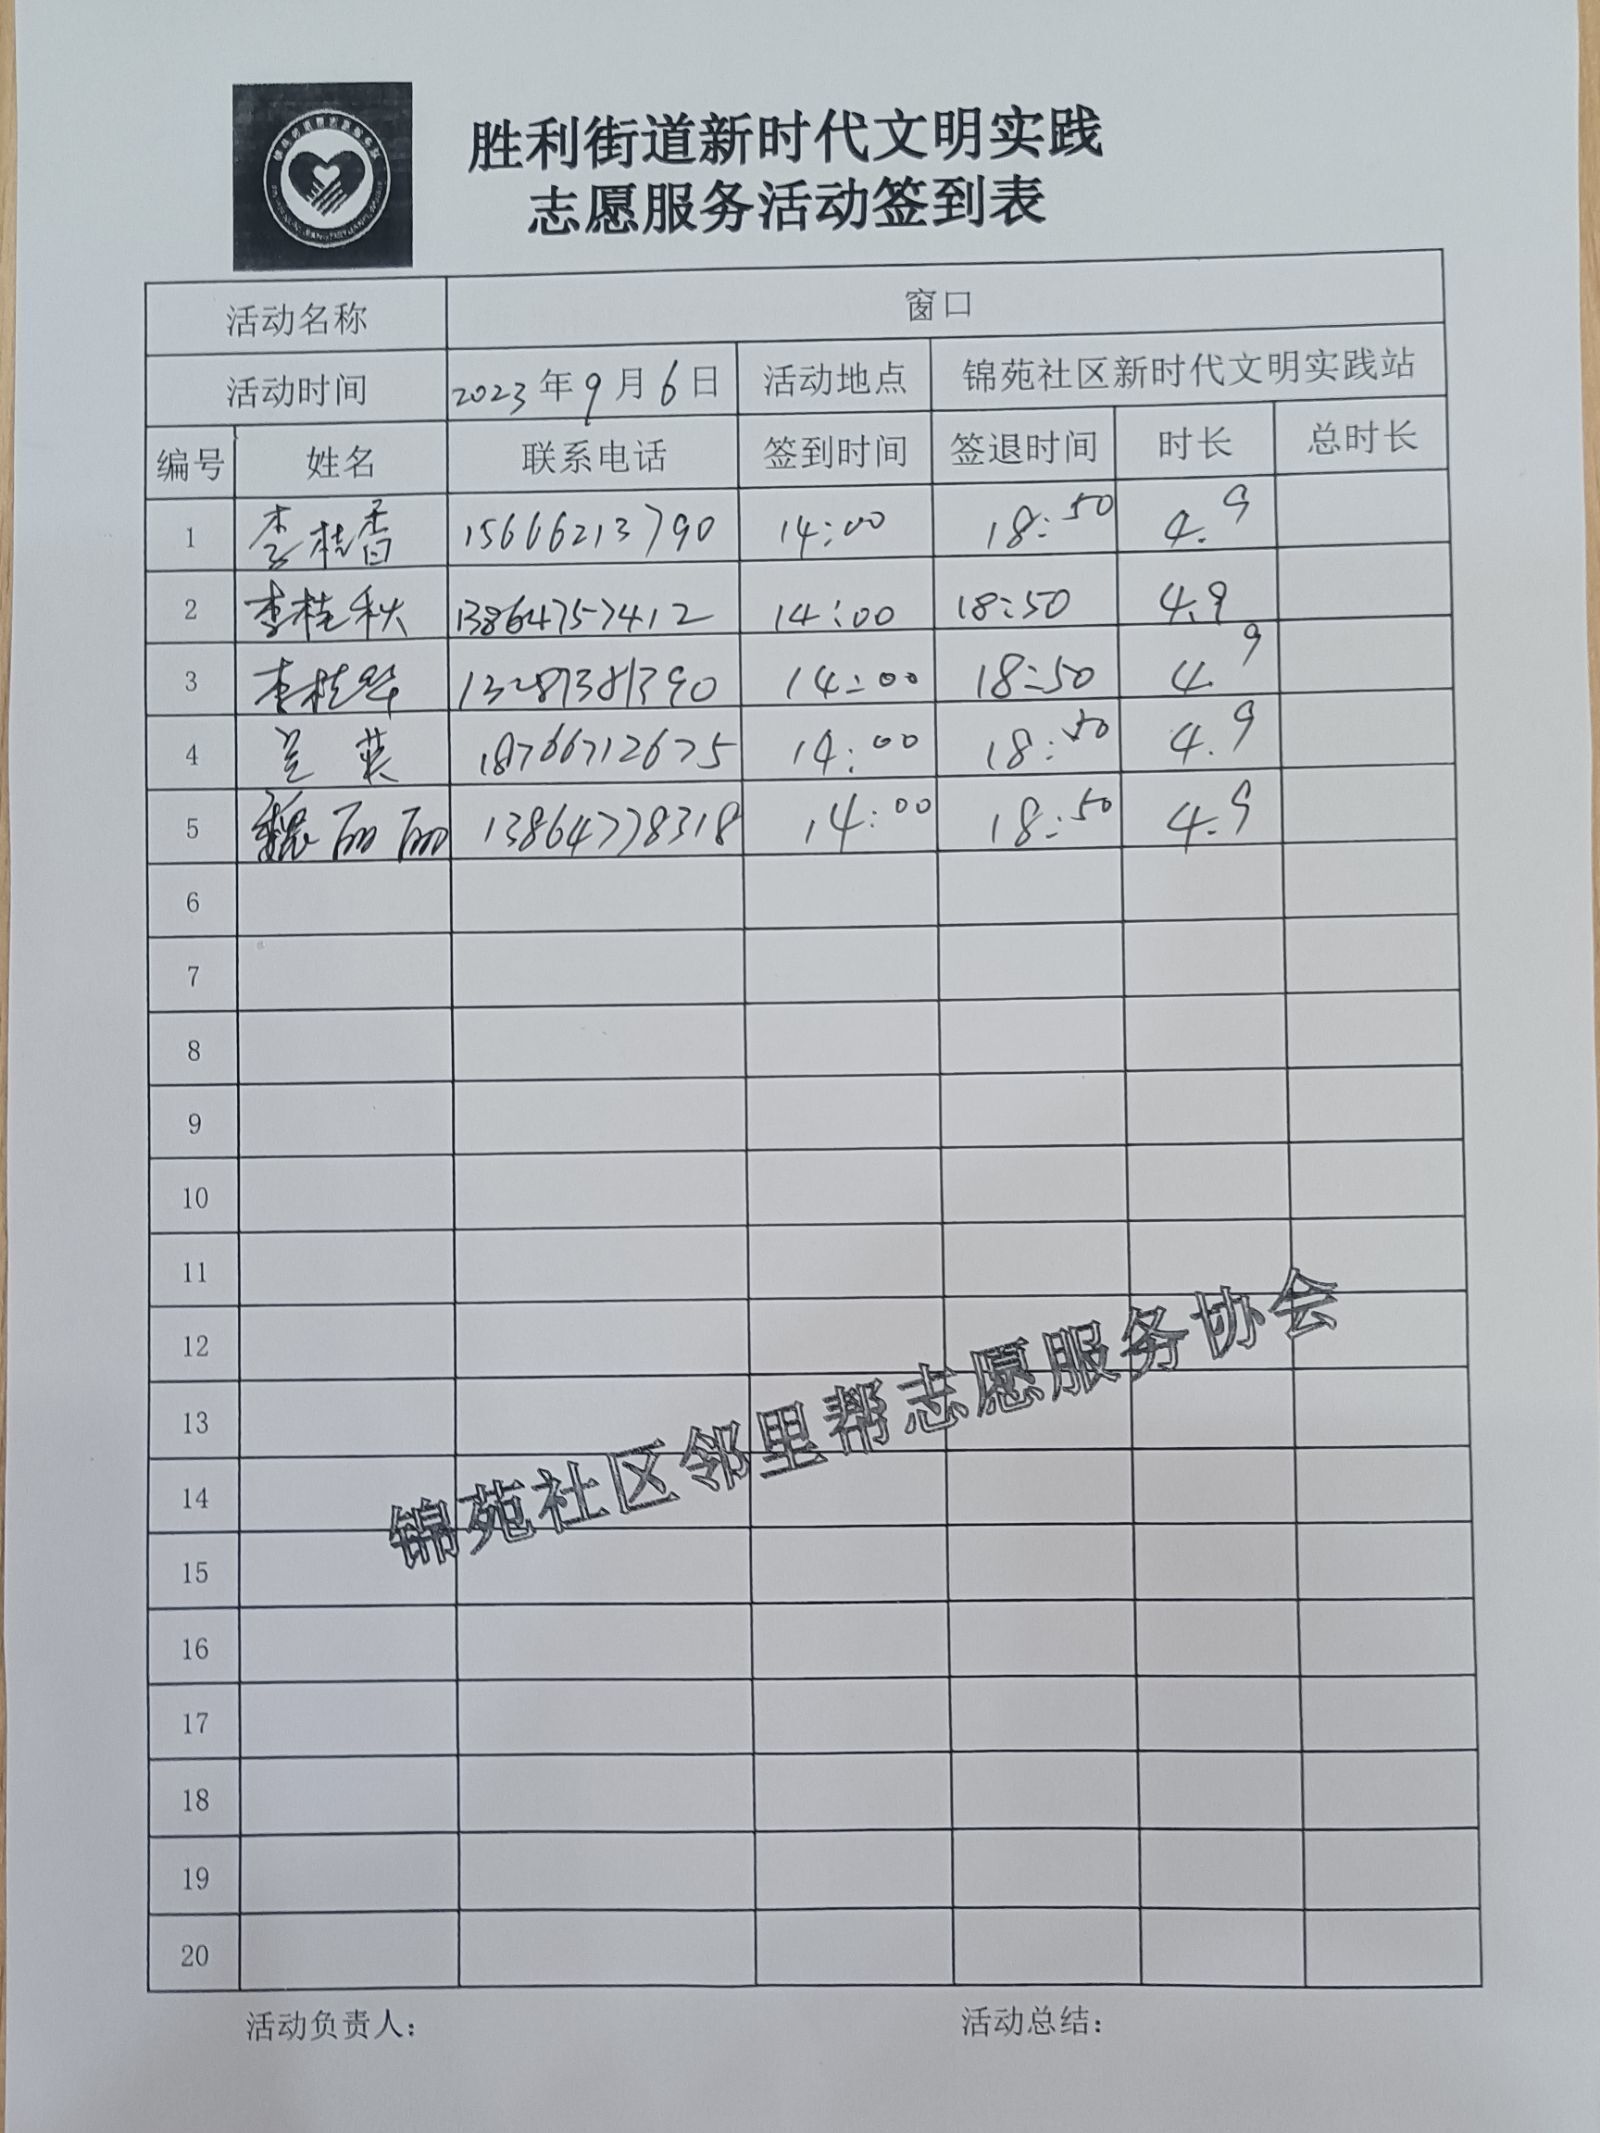 胜利街道新时代文明实践
志愿服务活动签到表
活动名称 窗口
活动时间 2023年9月6日 活动地点 锦苑社区新时代文明实践站
编号 姓名 联系电话 签到时间 签退时间 时长 总时长
1 李桂香 15666213790 14:00 18:50 4.9
2 李桂秋 13864757412 14:00 18:50 4.9
3 李桂华 13287381390 14:00 18:50 4.9
4 兰英 18766712675 14:00 18:50 4.9
5 魏丽丽 13864778318 14:00 18:50 4.9
6
7
8
9
10
11
12
13
14
15
16
17
18
19
20
锦苑社区邻里帮志愿服务协会
活动负责人: 活动总结: